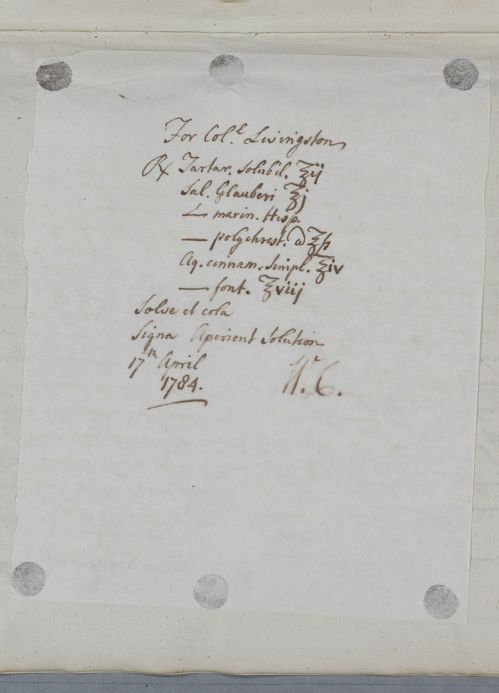 For Col.ˡ Livingston
℞ Tartar. solubil. ℥ij
Sal. Glauberi ℥j
— marin. Hisp.
— polychrest. a ℥ſs
Aq. cinnam. simpl. ℥iv
— font. ℥viij
Solve et cola
Signa Aperient Solution
17th April
1784.
W. C.